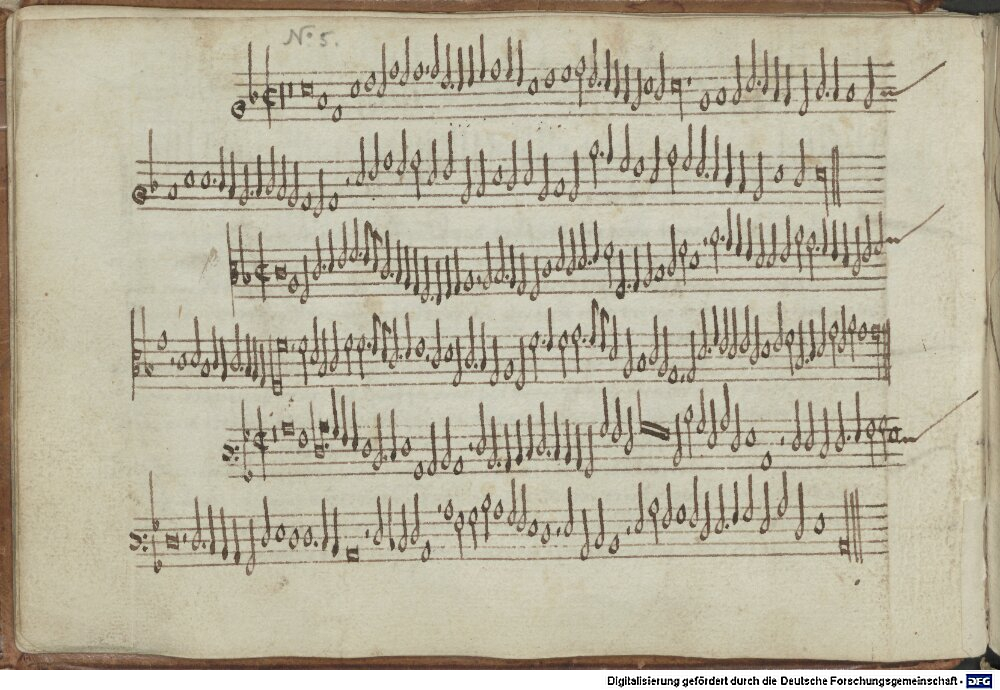 No 5.
Digitalisierung gefördert durch die Deutsche Forschungsgemeinschaft - DFG